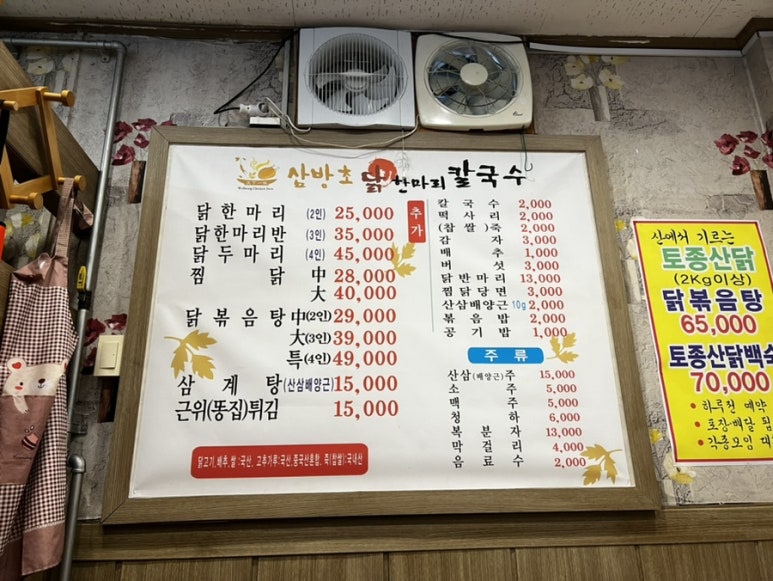 삼방초 닭 한마리 칼국수
닭한마리 (2인) 25,000
닭한마리반 (3인) 35,000
닭두마리 (4인) 45,000
찜닭 中 28,000
大 40,000
닭볶음탕 中(2인) 29,000
大(3인) 39,000
특(4인) 49,000
삼계탕 (산삼배양근) 15,000
근위(똥집)튀김 15,000
닭고기,배추,쌀:국산, 고추가루:국산,중국산혼합, 죽(찹쌀):국내산
추가
칼국수 2,000
떡사리 2,000
(찹쌀)죽 2,000
감자 3,000
배추 1,000
버섯 3,000
닭반마리 13,000
찜닭당면 3,000
산삼배양근 10g 2,000
볶음밥 2,000
공기밥 1,000
주류
산삼(배양근)주 15,000
소주 5,000
맥주 5,000
청하 6,000
복분자 13,000
막걸리 4,000
음료수 2,000
산에서 기르는
토종산닭
(2Kg이상)
닭볶음탕
65,000
토종산닭백숙
70,000
• 하루전 예약
• 포장배달 됨
• 각종모임